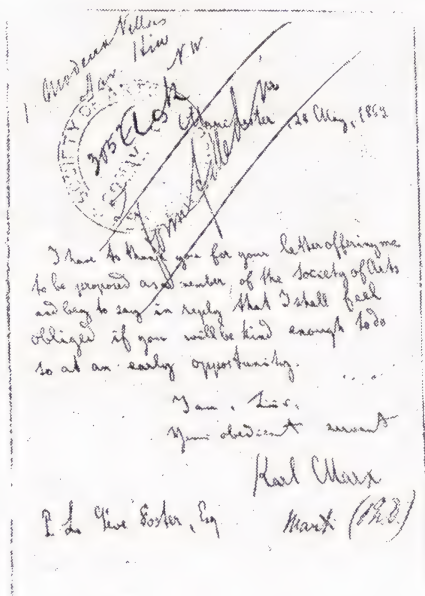 1 Modena Villas
N.W
SOCIETY OF
Manchester, 28 May, 1869
I have to thank you for your letter offering me
to be proposed as a member, of the Society of Arts
and beg to say in reply that I shall feel
obliged if you will be kind enough to do
so at an early opportunity.
I am, Sir,
Your obedient servant
Karl Marx
P. Le Neve Foster, Esq
Marx (Ph.D.)